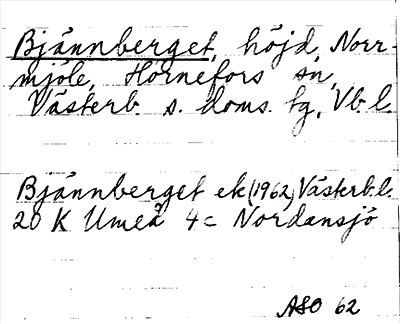 Bjännberget, höjd, Norr-
mjöle, Hörnefors sn,
Västerb. s. doms. tg, Vb. l.
Bjännberget ek (1962) Västerb. l.
20 K Umeå 4 c Nordansjö
ASO 62